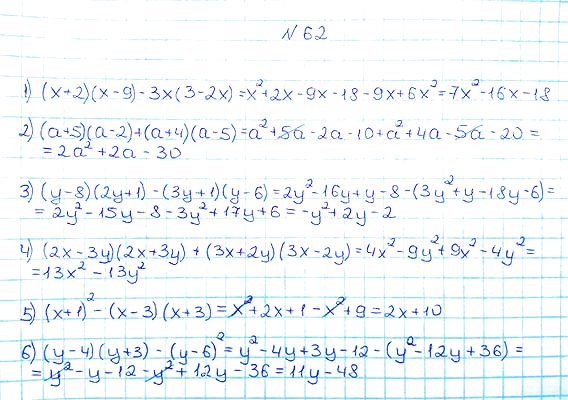 N 62
1) (x+2)(x-9)-3x(3-2x)=x²+2x-9x-18-9x+6x²=7x²-16x-18
2) (a+5)(a-2)+(a+4)(a-5)=a²+5a-2a-10+a²+4a-5a-20=
=2a²+2a-30
3) (y-8)(2y+1)-(3y+1)(y-6)=2y²-16y+y-8-(3y²+y-18y-6)=
=2y²-15y-8-3y²+17y+6=-y²+2y-2
4) (2x-3y)(2x+3y)+(3x+2y)(3x-2y)=4x²-9y²+9x²-4y²=
=13x²-13y²
5) (x+1)²-(x-3)(x+3)=x²+2x+1-x²+9=2x+10
6) (y-4)(y+3)-(y-6)²=y²-4y+3y-12-(y²-12y+36)=
=y²-y-12-y²+12y-36=11y-48